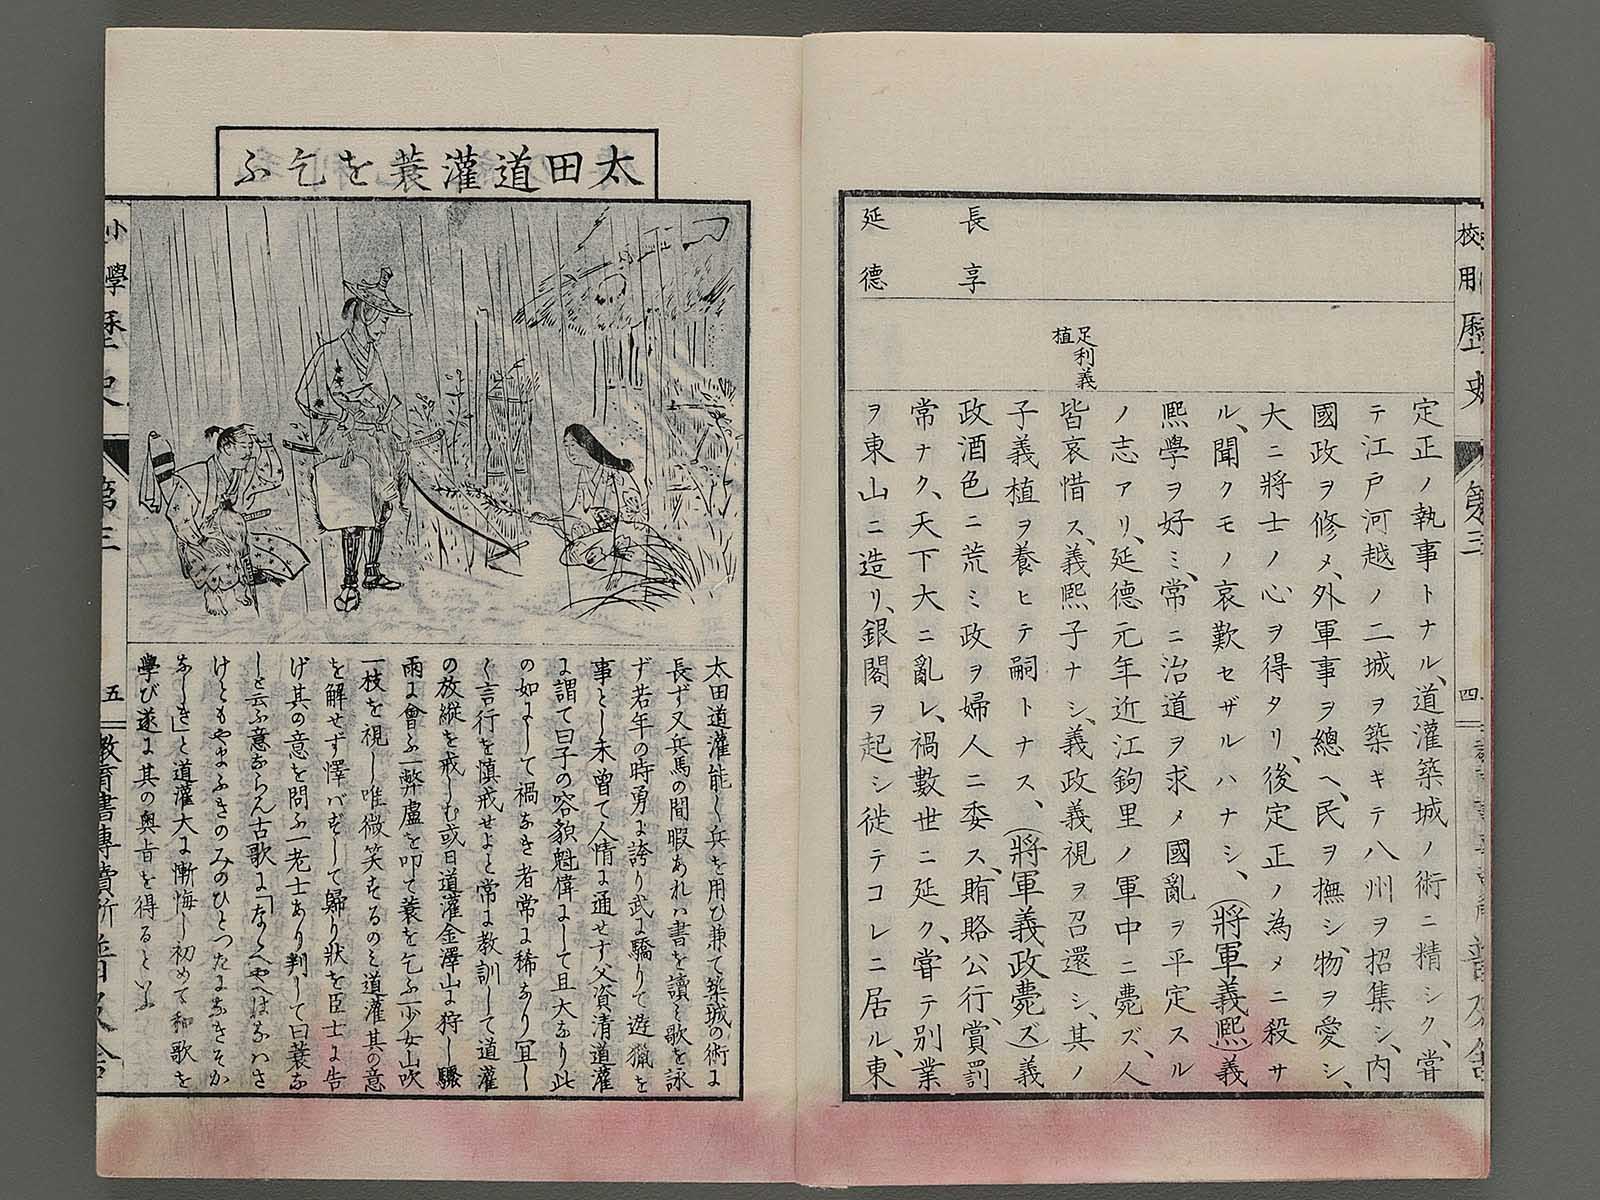 校用歷史
第三
四
長享
延德
足利義
植
定正ノ執事トナル、道灌築城ノ術ニ精シク、嘗
テ江戸河越ノ二城ヲ築キテ八州ヲ招集シ、内
國政ヲ修メ、外軍事ヲ總ヘ、民ヲ撫シ、物ヲ愛シ、
大ニ將士ノ心ヲ得タリ、後定正ノ為メニ殺サ
ル、聞クモノ哀歎セザルハナシ、(將軍義熙)義
熙學ヲ好ミ、常ニ治道ヲ求メ國亂ヲ平定スル
ノ志アリ、延德元年近江鉤里ノ軍中ニ薨ズ、人
皆哀惜ス、義熙子ナシ、義政義視ヲ召還シ、其ノ
子義植ヲ養ヒテ嗣トナス、(將軍義政薨ズ)義
政酒色ニ荒ミ政ヲ婦人ニ委ス、賄賂公行、賞罰
常ナク、天下大ニ亂レ、禍數世ニ延ク、嘗テ別業
ヲ東山ニ造リ、銀閣ヲ起シ徙テコレニ居ル、東
太田道灌蓑を乞ふ
太田道灌能く兵を用ひ兼て築城の術に
長ず又兵馬の間暇あれハ書を讀ミ歌を詠
ず若年の時勇に誇り武に驕りて遊獵を
事とし未曾て人情に通せす父資清道灌
に謂て曰子の容貌魁偉にして且大なり此
の如にして禍なき者常に稀なり冝し
く言行を慎戒せよと常に教訓して道灌
の放縱を戒しむ或日道灌金澤山に狩し驟
雨に會ふ一弊盧を叩て蓑を乞ふ一少女山吹
一枝を視し唯微笑するのミ道灌其の意
を解せず懌バずして歸り狀を臣士に告
げ其の意を問ふ一老士あり判して曰蓑な
しと云ふ意ならん古歌に「なゝへやへはなハさ
けともやまふきのみのひとつたになきそか
なしき」と道灌大に慚悔し初めて和歌を
學び遂に其の奧旨を得るといふ
小學歷史
第三
五
教育書專賣所普及舍